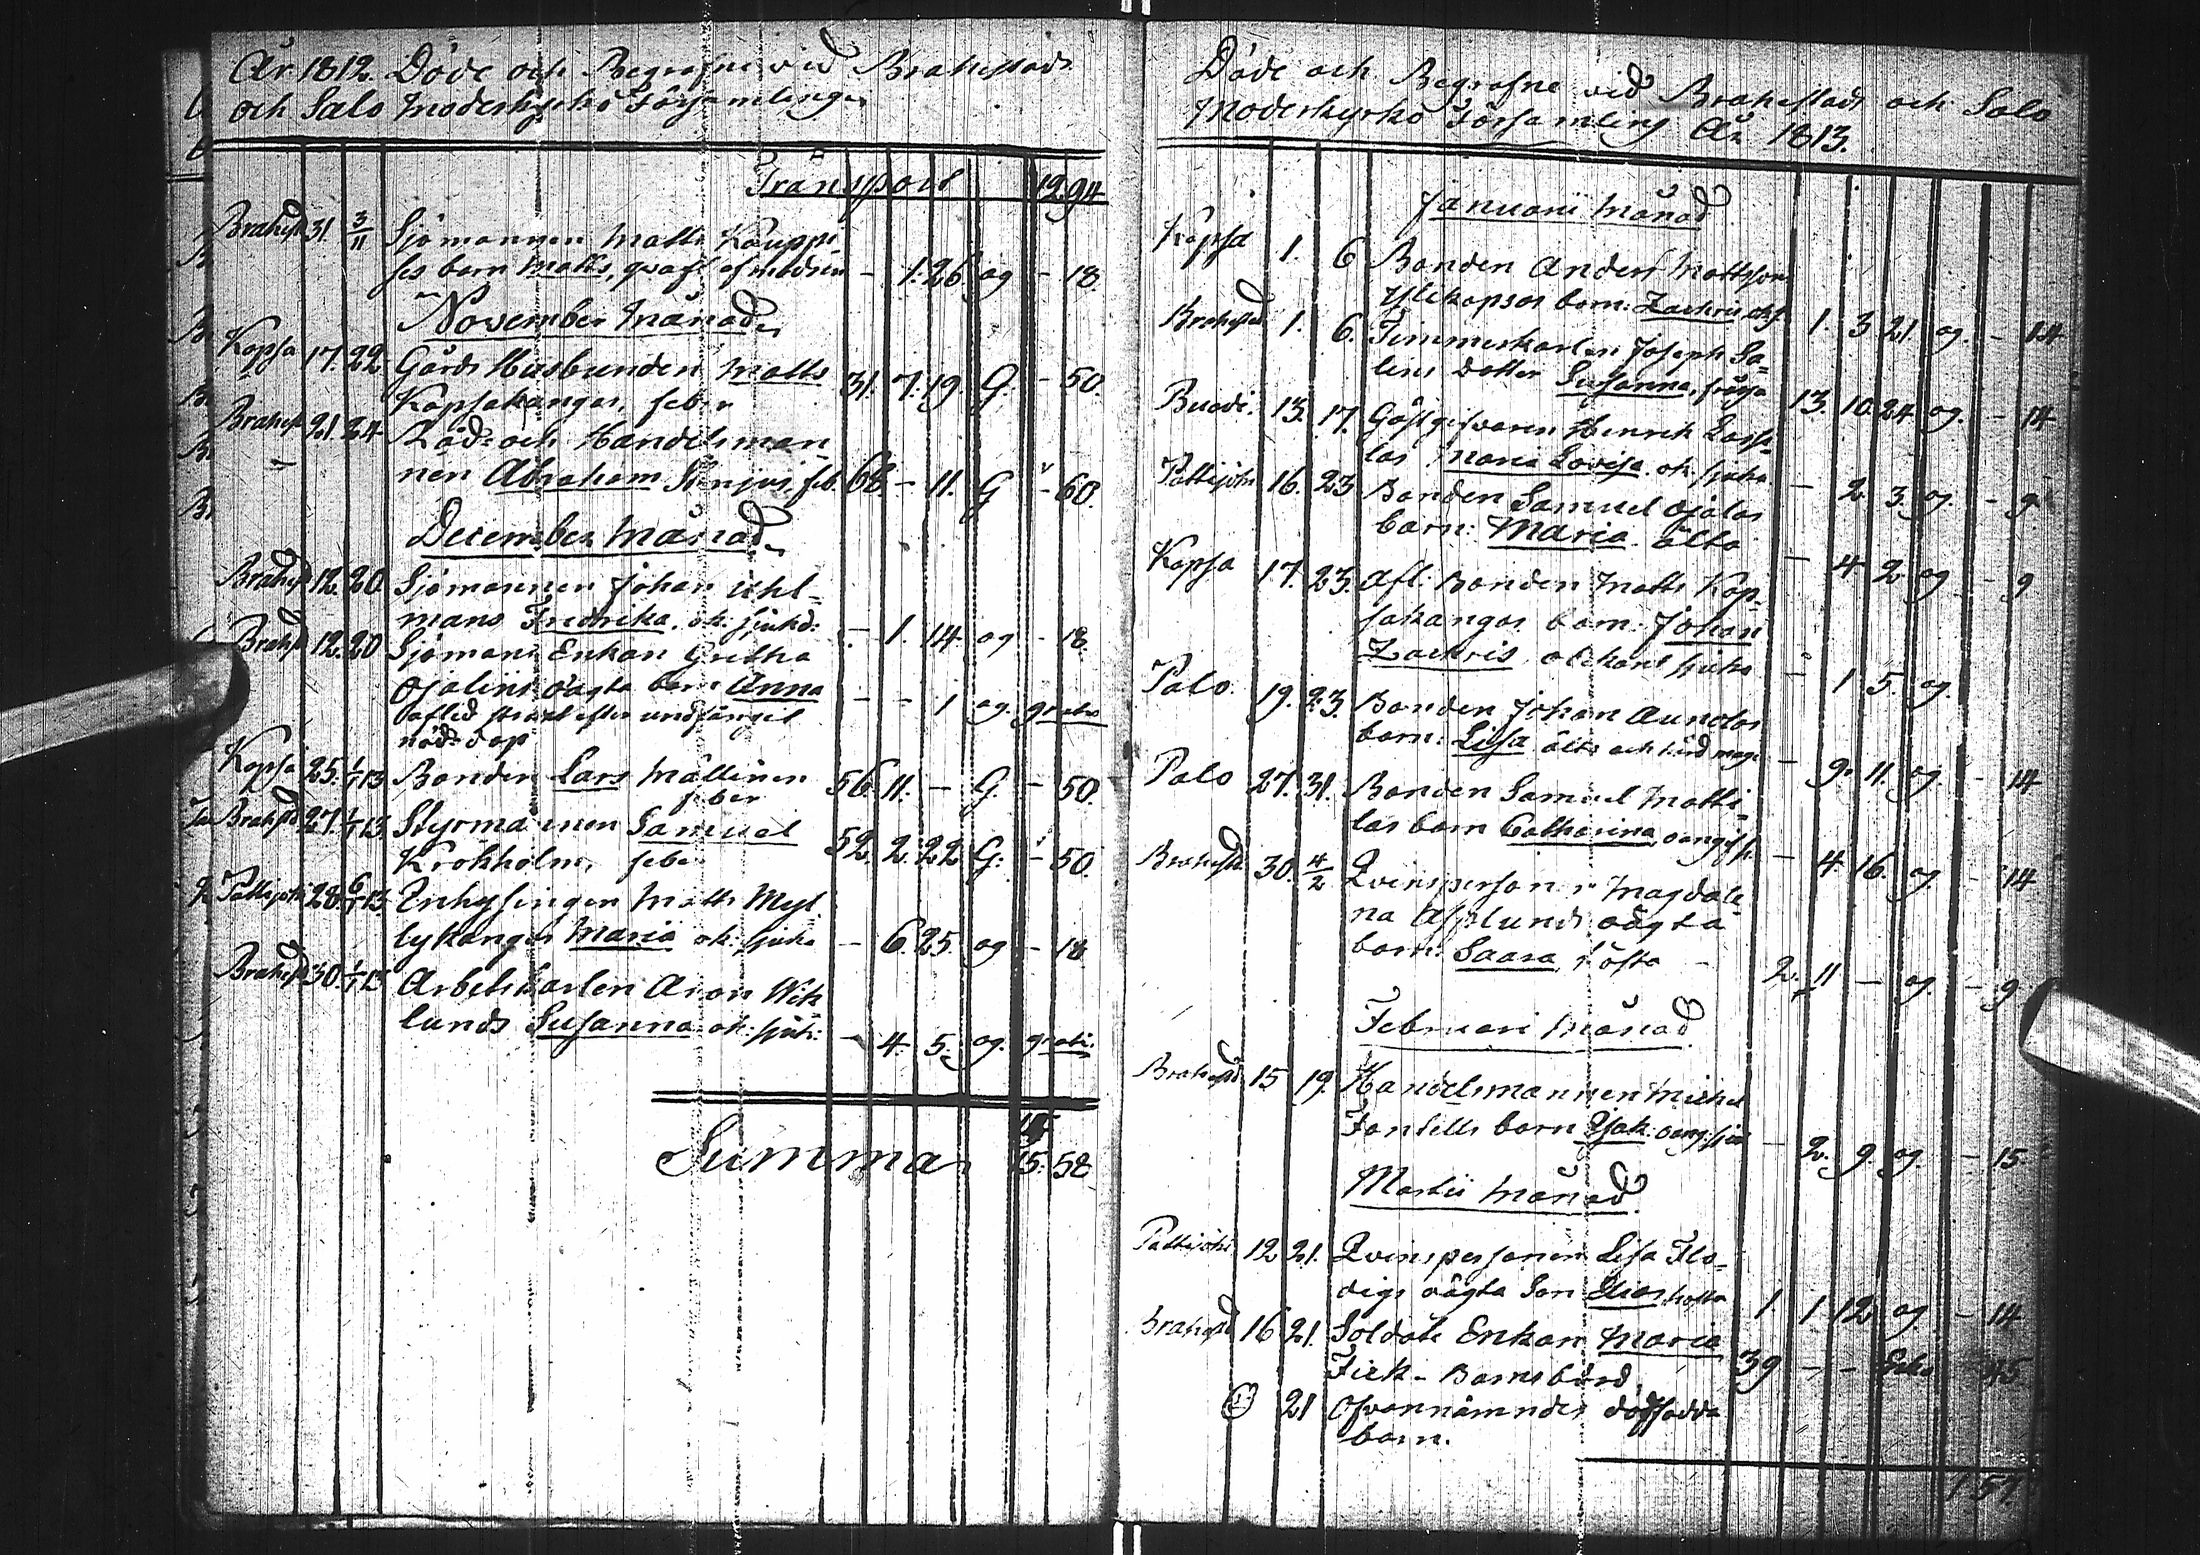 År 1812. Döde och Begrafne vid Brahestads
och Salo Moderkyrko Församlingar
Transport 12.94
Brahest. 31. 3/11 Sjömannen Matts Kauppi-
ses barn Matts, qvafd af modren - 1. 26 og - 18.
November Månad
Kopsa 17. 22 Gårds Husbunden Matts
Kopsakangas, feber 31. 7. 19. G. - 50.
Brahest. 21. 24 Råd- och Handelsman-
nen Abraham feb. 68. - 11. G - 60.
December Månad
Brahest. 12. 20. Sjömannen Johan Uhl-
mans Fredrika, ok: sjukd: - 1. 14. og - 18.
Brahest. 12. 20 Sjömans Enkan Gretha
Ojalins oägta barn Anna - - 1 og. gratis
afled strax efter undfånget
nöd-dop
Kopsa 25. 1/1 13 Bonden Lars Mällinen
feber 56. 11. - G. - 50.
Brahestd. 27. 1/1 13 Styrmannen Samuel
Krokholm, feber 52. 2. 22 G: - 50.
Pattijoki 28. 6/1 13 Inhysingen Matts Myl-
lykangas Maria ok: sjuka - 6. 25. og - 18
Brahestd 30. 1/1 13 Arbetskarlen Aron Wik-
lunds Susanna ok: sjuk: - 4. 5. og. gratis.
Summa 15. 58
Döde och Begrafne vid Brahestads och Salo
Moderkyrko Församling År 1813.
Januarii Månad
Kopsa 1. 6 Bonden Anders Mattsson
Ylikopsas barn: Zachris 1. 3 21. og. - 14
Brahestad 1. 6. Timmerkarlen Joseph Sa-
lins dotter Susanna, 13. 10. 24 og. - 14
13. 17. Gästgifvaren Henrik Lassi-
las Maria Lovisa ok: sjuka - 2 3. og. - 9
Pattijoki 16. 23 Bonden Samuel Ojalas
barn: Maria älta - 4 2 og - 9
Kopsa 17. 23. Afl. Bonden Matts Kop-
sakangas barn: Johan
Zachris, obekant sjuka - 1 5. og.
Palo. 19. 23. Bonden Johan Aunolas
barn: Lisa älta och hård mage - 9. 11. og - 14
Palo 27. 31. Bonden Samuel Matti-
las barn Catharina, - 4. 16. og - 14
Brahestd. 30. 4/2 Qvinspersonen Magdale-
na Asplunds oägta
barn: Saara, hosta - 2. 11 - og. - 9
Februari Månad
Brahestd 15 19. Handelsmannen Michel
Fontells barn - 2. 9. og. - 15.
Martii Månad
Pattijoki 12 21. Qvinspersonen Lisa Flo-
digs oägta Son Elias hosta 1 1 12 og - 14
Brahestd 16 21. Soldats Enkan Maria
Fick - Barnsbörd 39 - - Enka 45
21 Ofvannämndes dödfödda
barn.
1 57.